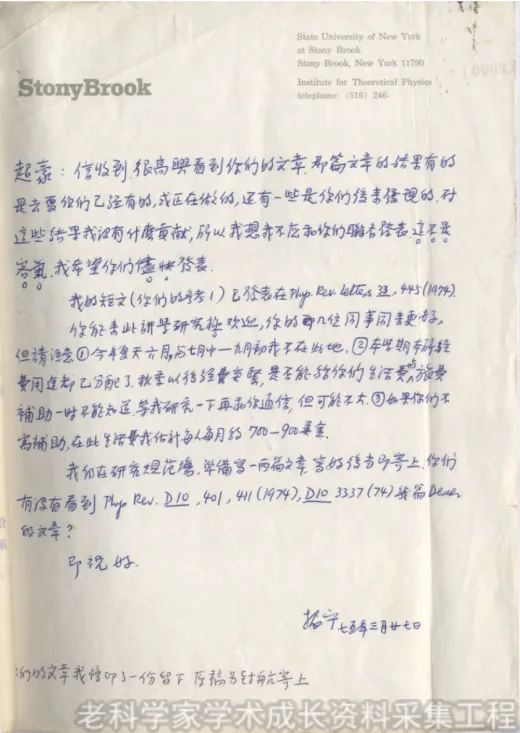 State University of New York
at Stony Brook
Stony Brook, New York 11790
Institute for Theoretical Physics
telephone: (516) 246-
StonyBrook
超豪：信收到，很高興看到你们的文章。那篇文章的结果有的
是去夏你们已经有的，或正在做的，还有一些是你们後来發現的。对
这些结果我没有什麽貢献，所以我想我不应和你们联名發表。这不是
客氣。我希望你们儘快發表。
我的短文(你们的参考1)已發表在Phys. Rev. Letters 33, 445(1974).
你能来此講學研究極欢迎，你的那几位同事同来更好。
但請注意①今年夏天六月,与七月中—九月初我不在此地。②本学期本所经
费用途都已分配了。秋季以後经費奇緊，是否能给你们生活费与旅费
補助一时不能知道，等我研究一下再和你通信，但可能不大。③如果你们不
需補助，在此生活費我估計每人每月约700—900美金。
我们在研究规范場，準備寫一两篇文章，寫好後当即寄上。你们
有没有看到 Phys Rev. D10, 401, 411 (1974), D10 3337 (74) 幾篇 Deser
的文章？
即祝 好。
振宁 七五年三月廿七日
你们的文章我複印了一份留下，原稿另封航寄上
老科学家学术成长资料采集工程